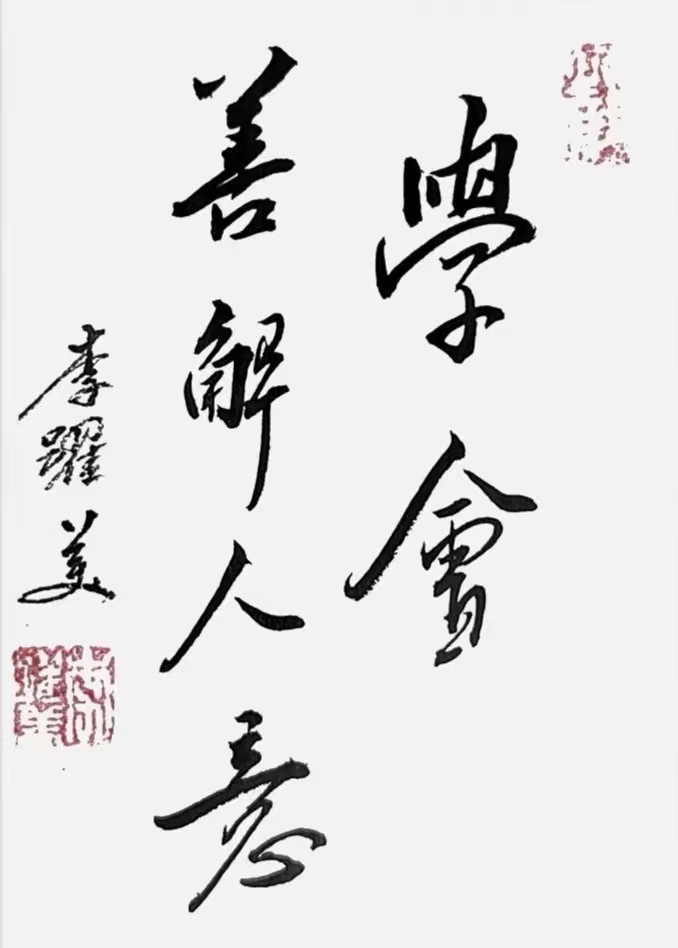 學會
善解人意
李躍美